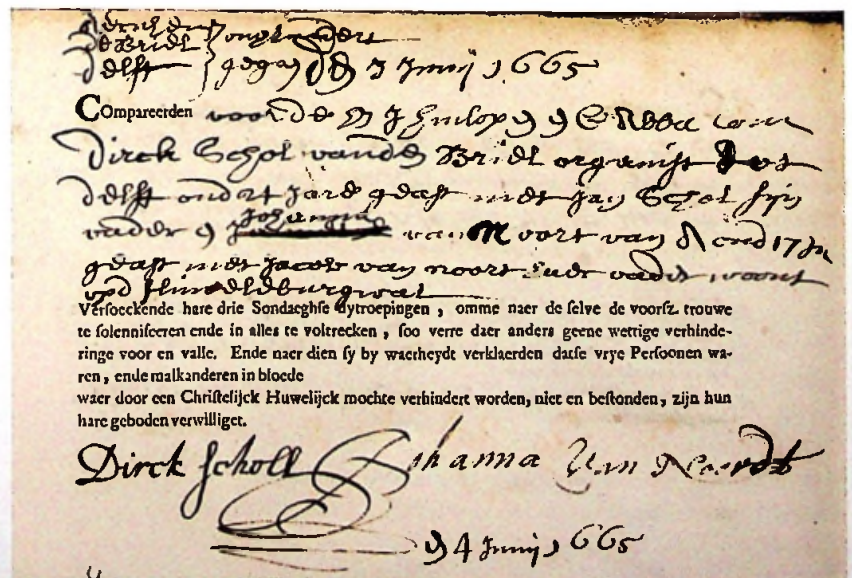 de Briel
delft
Junij 1665
Compareerden voor de
Dirck Schol vanden Briel organist tot
delft out 24 Jare geast met Jan Schol sijn
vader Johanna van Noort van A oud 17 Ja
geast met Jacob van noort haer vader woont
Versoeckende hare drie Sondaeghse uytroepingen , omme naer de selve de voorsz. trouwe
te solenniseeren ende in alles te voltrecken , soo verre daer anders geene wettige verhinde-
ringe voor en valle. Ende naer dien sy by waerheydt verklaerden datse vrye Persoonen wa-
ren , ende malkanderen in bloede
waer door een Christelijck Huwelijck mochte verhindert worden, niet en bestonden , zijn hun
hare geboden verwilliget.
Dirck Scholl Johanna Van Noordt
4 Junij 1665